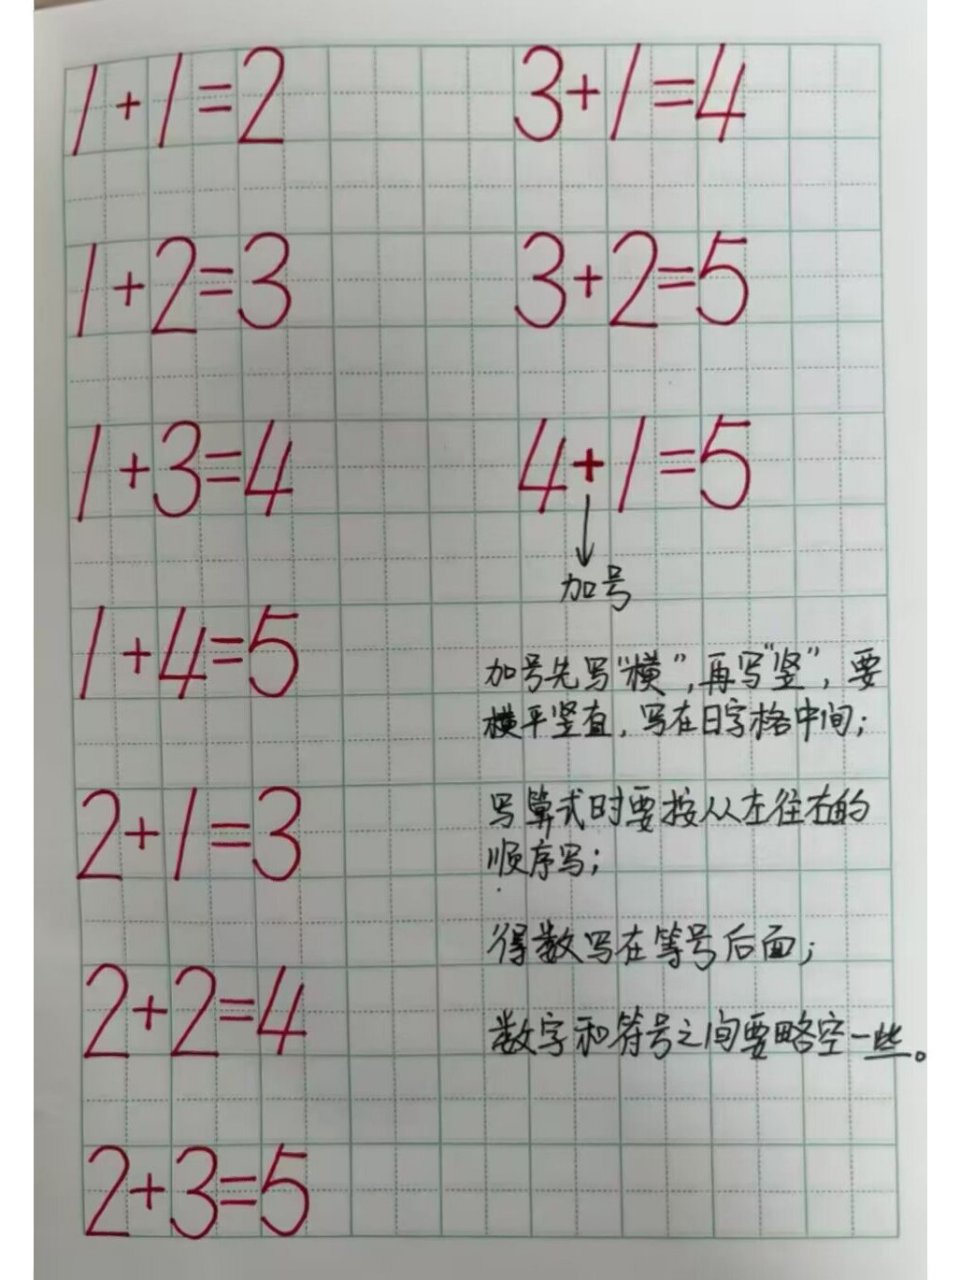 1+1=2
1+2=3
1+3=4
1+4=5
2+1=3
2+2=4
2+3=5
3+1=4
3+2=5
4+1=5
加号
加号先写“横”,再写“竖”,要
横平竖直,写在日字格中间;
写算式时要按从左往右的
顺序写;
得数写在等号后面;
数字和符号之间要略空一些。